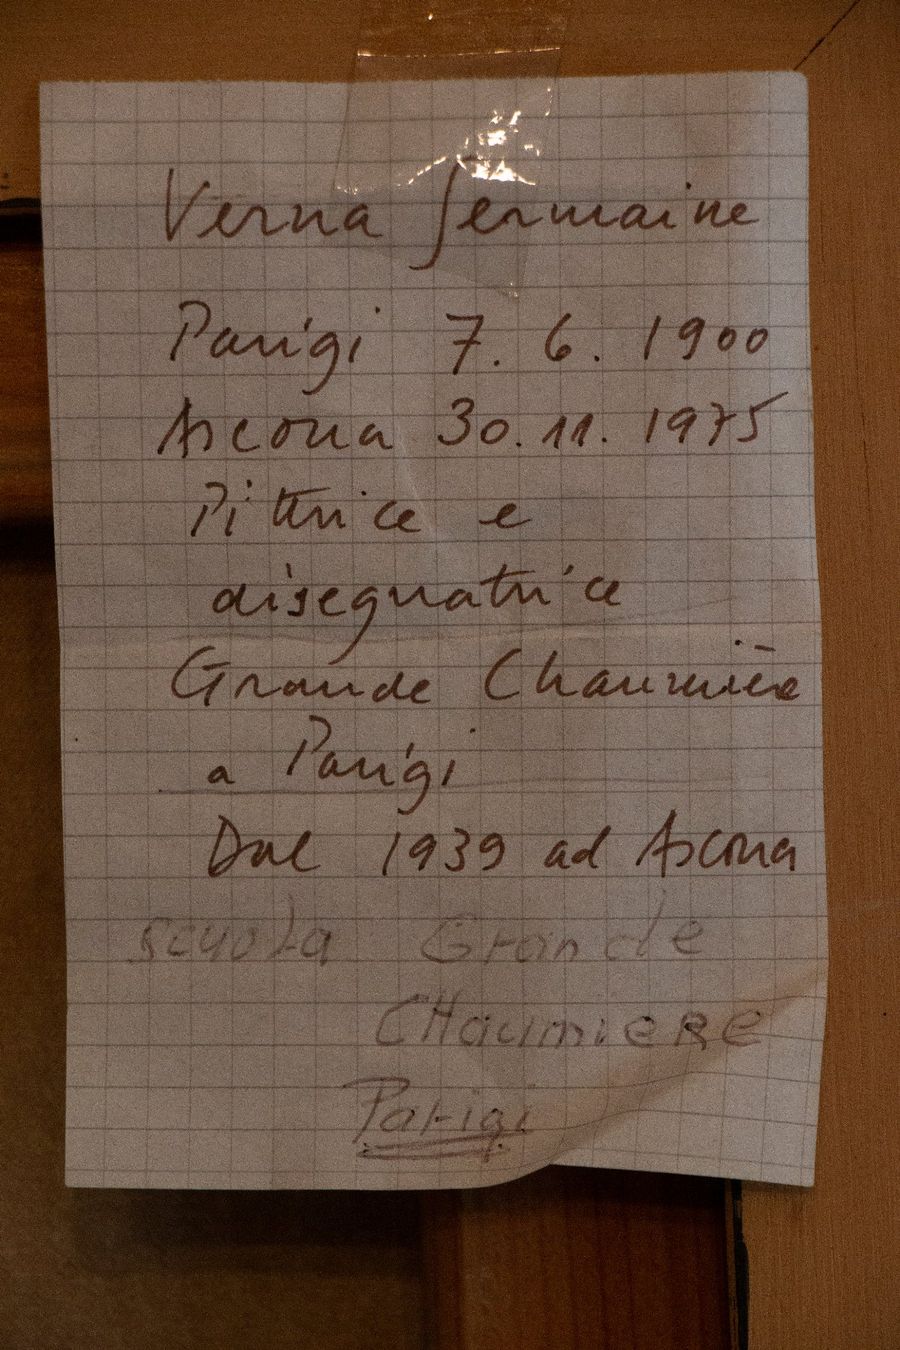 Verna Germaine
Parigi 7. 6. 1900
Ascona 30. 11. 1975
Pittrice e
disegnatrice
Grande Chaumière
a Parigi
Dal 1939 ad Ascona
scuola Grande
CHaumIERE
Parigi